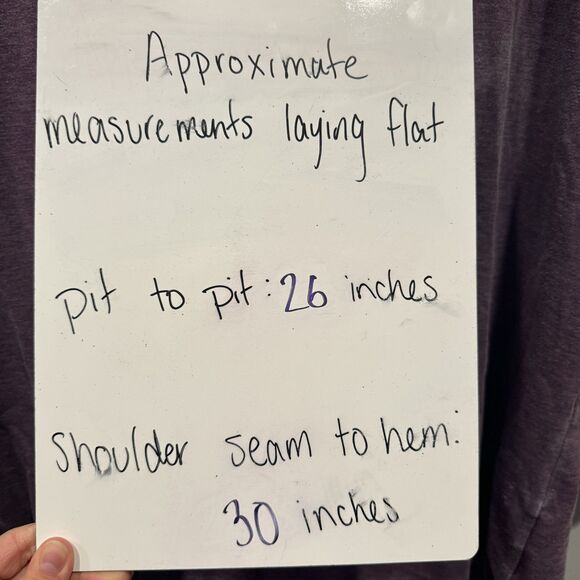 Approximate
measurements laying flat
pit to pit: 26 inches
shoulder seam to hem:
30 inches